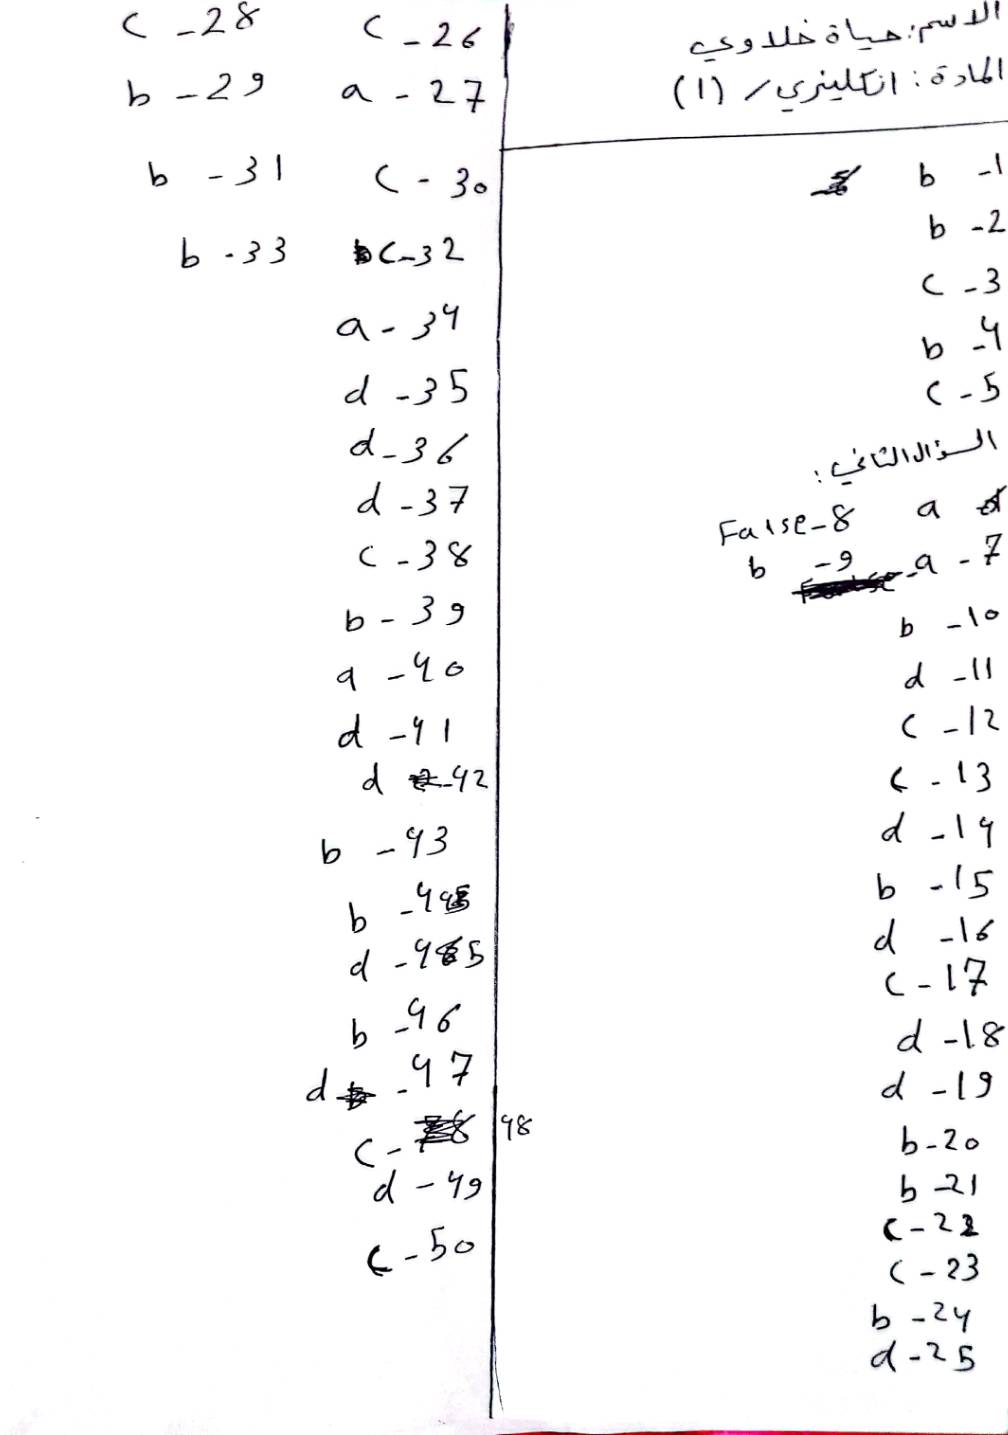 الاسم: حياة خلاوي
المادة: انكليزي / (1)
b -1
b -2
c -3
b -4
c -5
السؤال الثاني:
a
False -8
a -7
b -9
b -10
d -11
c -12
c -13
d -14
b -15
d -16
c -17
d -18
d -19
b -20
b -21
c -22
c -23
b -24
d -25
c -26
c -28
a -27
b -29
c -30
b -31
c -32
b -33
a -34
d -35
d -36
d -37
c -38
b -39
a -40
d -41
d -42
b -43
b -44
d -45
b -46
d -47
c - 48
d -49
c -50